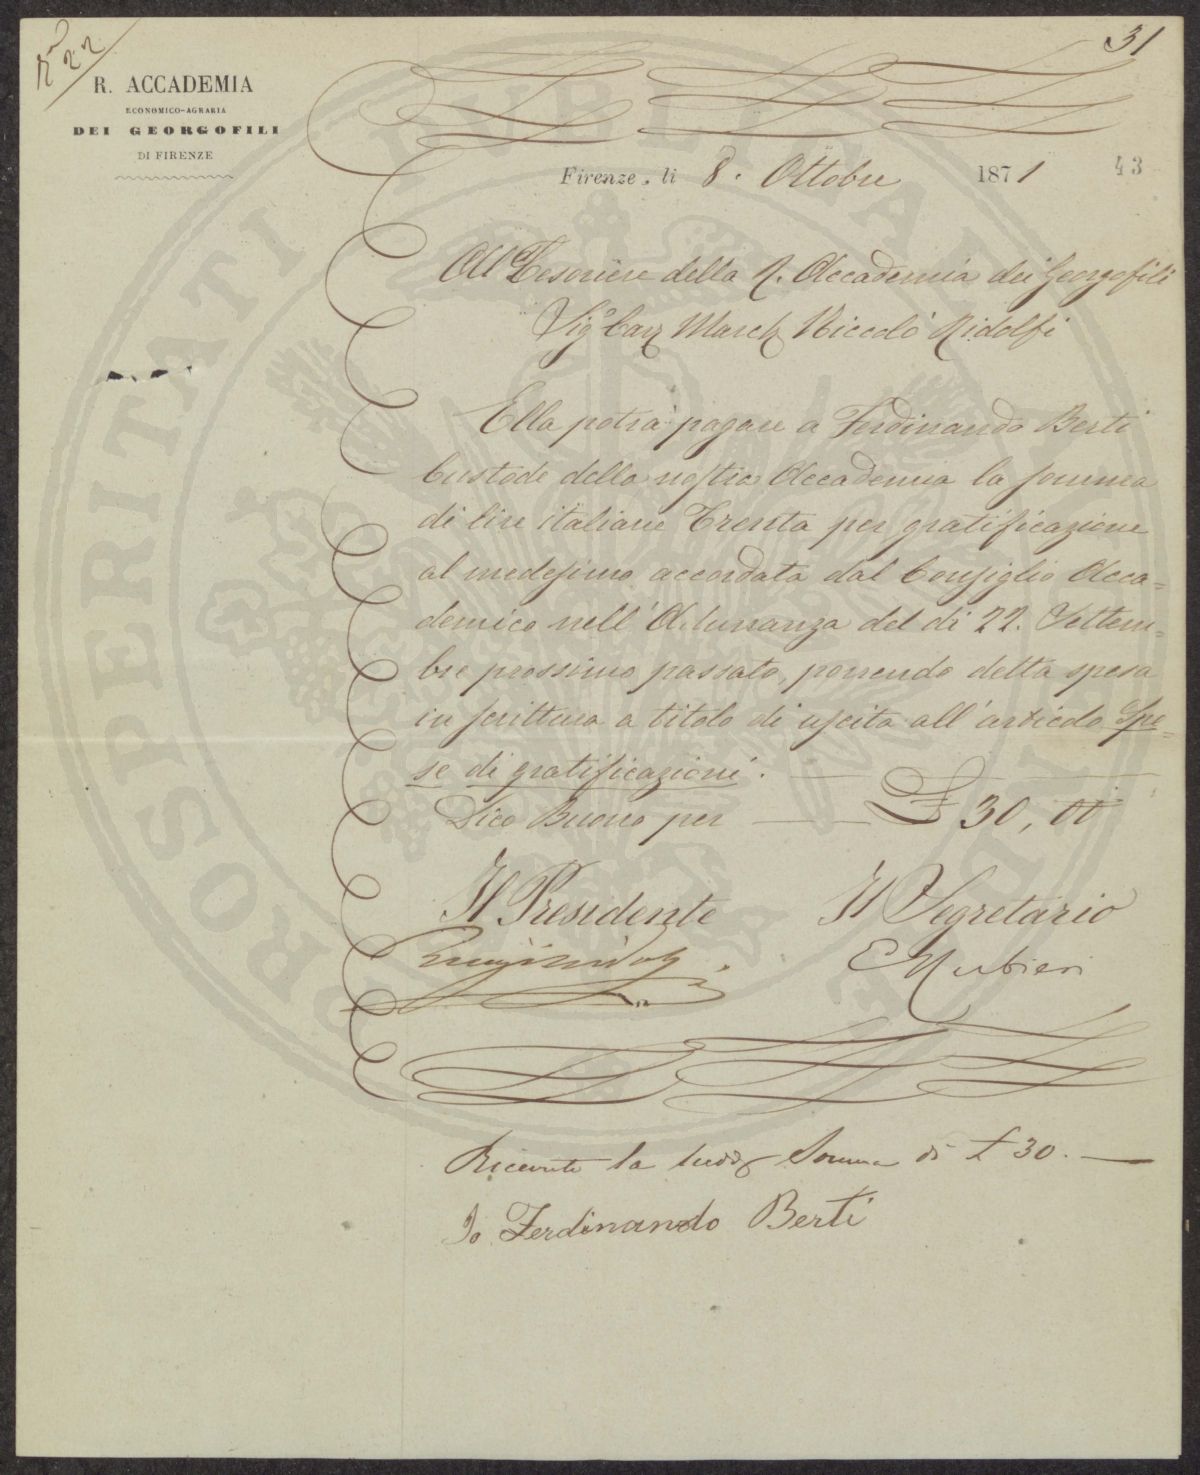 N° 22
31
R. ACCADEMIA
ECONOMICO-AGRARIA
DEI GEORGOFILI
DI FIRENZE
Firenze, li 8. Ottobre 1871
43
All Tesoriere della R. Accademia dei Georgofili
Sigr Cav March Niccolò Ridolfi
Ella potrà pagare a Ferdinando Berti
Custode della nostra Accademia la somma
di lire italiane Trenta per gratificazione
al medesimo accordata dal Consiglio Acca=
demico nell' Adunanza del dì 22. Settem=
bre prossimo passato, ponendo detta spesa
in scrittura a titolo di uscita all' articolo Spe=
se di gratificazioni.
Dico Buono per £ 30, 00
Il Presidente Il Segretario
Luigi Ridolfi E Rubieri
Ricevuto la sudd Somma di £ 30.
Io Ferdinando Berti
PROSPERITATI PUBLICAE AUGENDAE